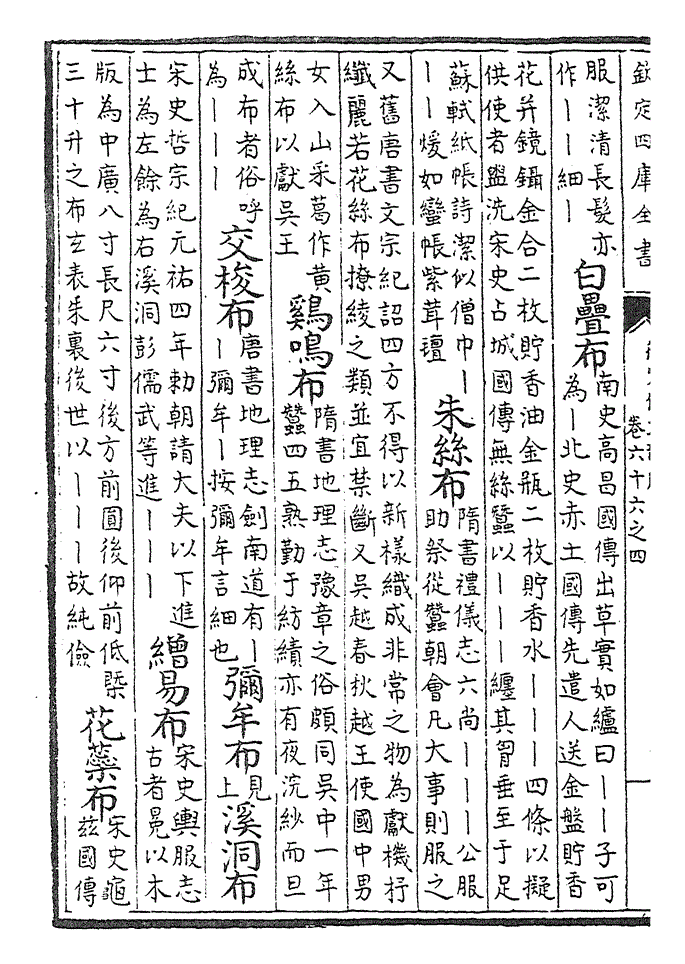 欽定四庫全書
卷六十六之四
服潔清長髮亦
作丨丨細丨
白疊布
南史高昌國傳出草實如纑曰丨丨子可
為丨北史赤土國傳先遣人送金盤貯香
花并鏡鑷金合二枚貯香油金瓶二枚貯香水丨丨丨四條以擬
供使者盥洗宋史占城國傳無絲蠶以丨丨丨纏其胷垂至于足
蘇軾紙帳詩潔似僧巾丨
丨丨煖如蠻帳紫茸氊
朱絲布
隋書禮儀志六尚丨丨丨公服
助祭從蠶朝會凡大事則服之
又舊唐書文宗紀詔四方不得以新樣織成非常之物為獻機杼
纖麗若花絲布撩綾之類並宜禁斷又吳越春秋越王使國中男
女入山采葛作黄
絲布以獻吳王
鷄鳴布
隋書地理志豫章之俗頗同吳中一年
蠶四五熟勤于紡績亦有夜浣紗而旦
成布者俗呼
為丨丨丨
交梭布
唐書地理志劍南道有丨
丨彌牟丨按彌牟言細也
彌牟布
見
上
溪洞布
宋史哲宗紀元祐四年勅朝請大夫以下進
士為左餘為右溪洞彭儒武等進丨丨丨
繒易布
宋史輿服志
古者冕以木
版為中廣八寸長尺六寸後方前圓後仰前低槩
三十升之布玄表朱裏後世以丨丨丨故純儉
花蘂布
宋史龜
兹國傳